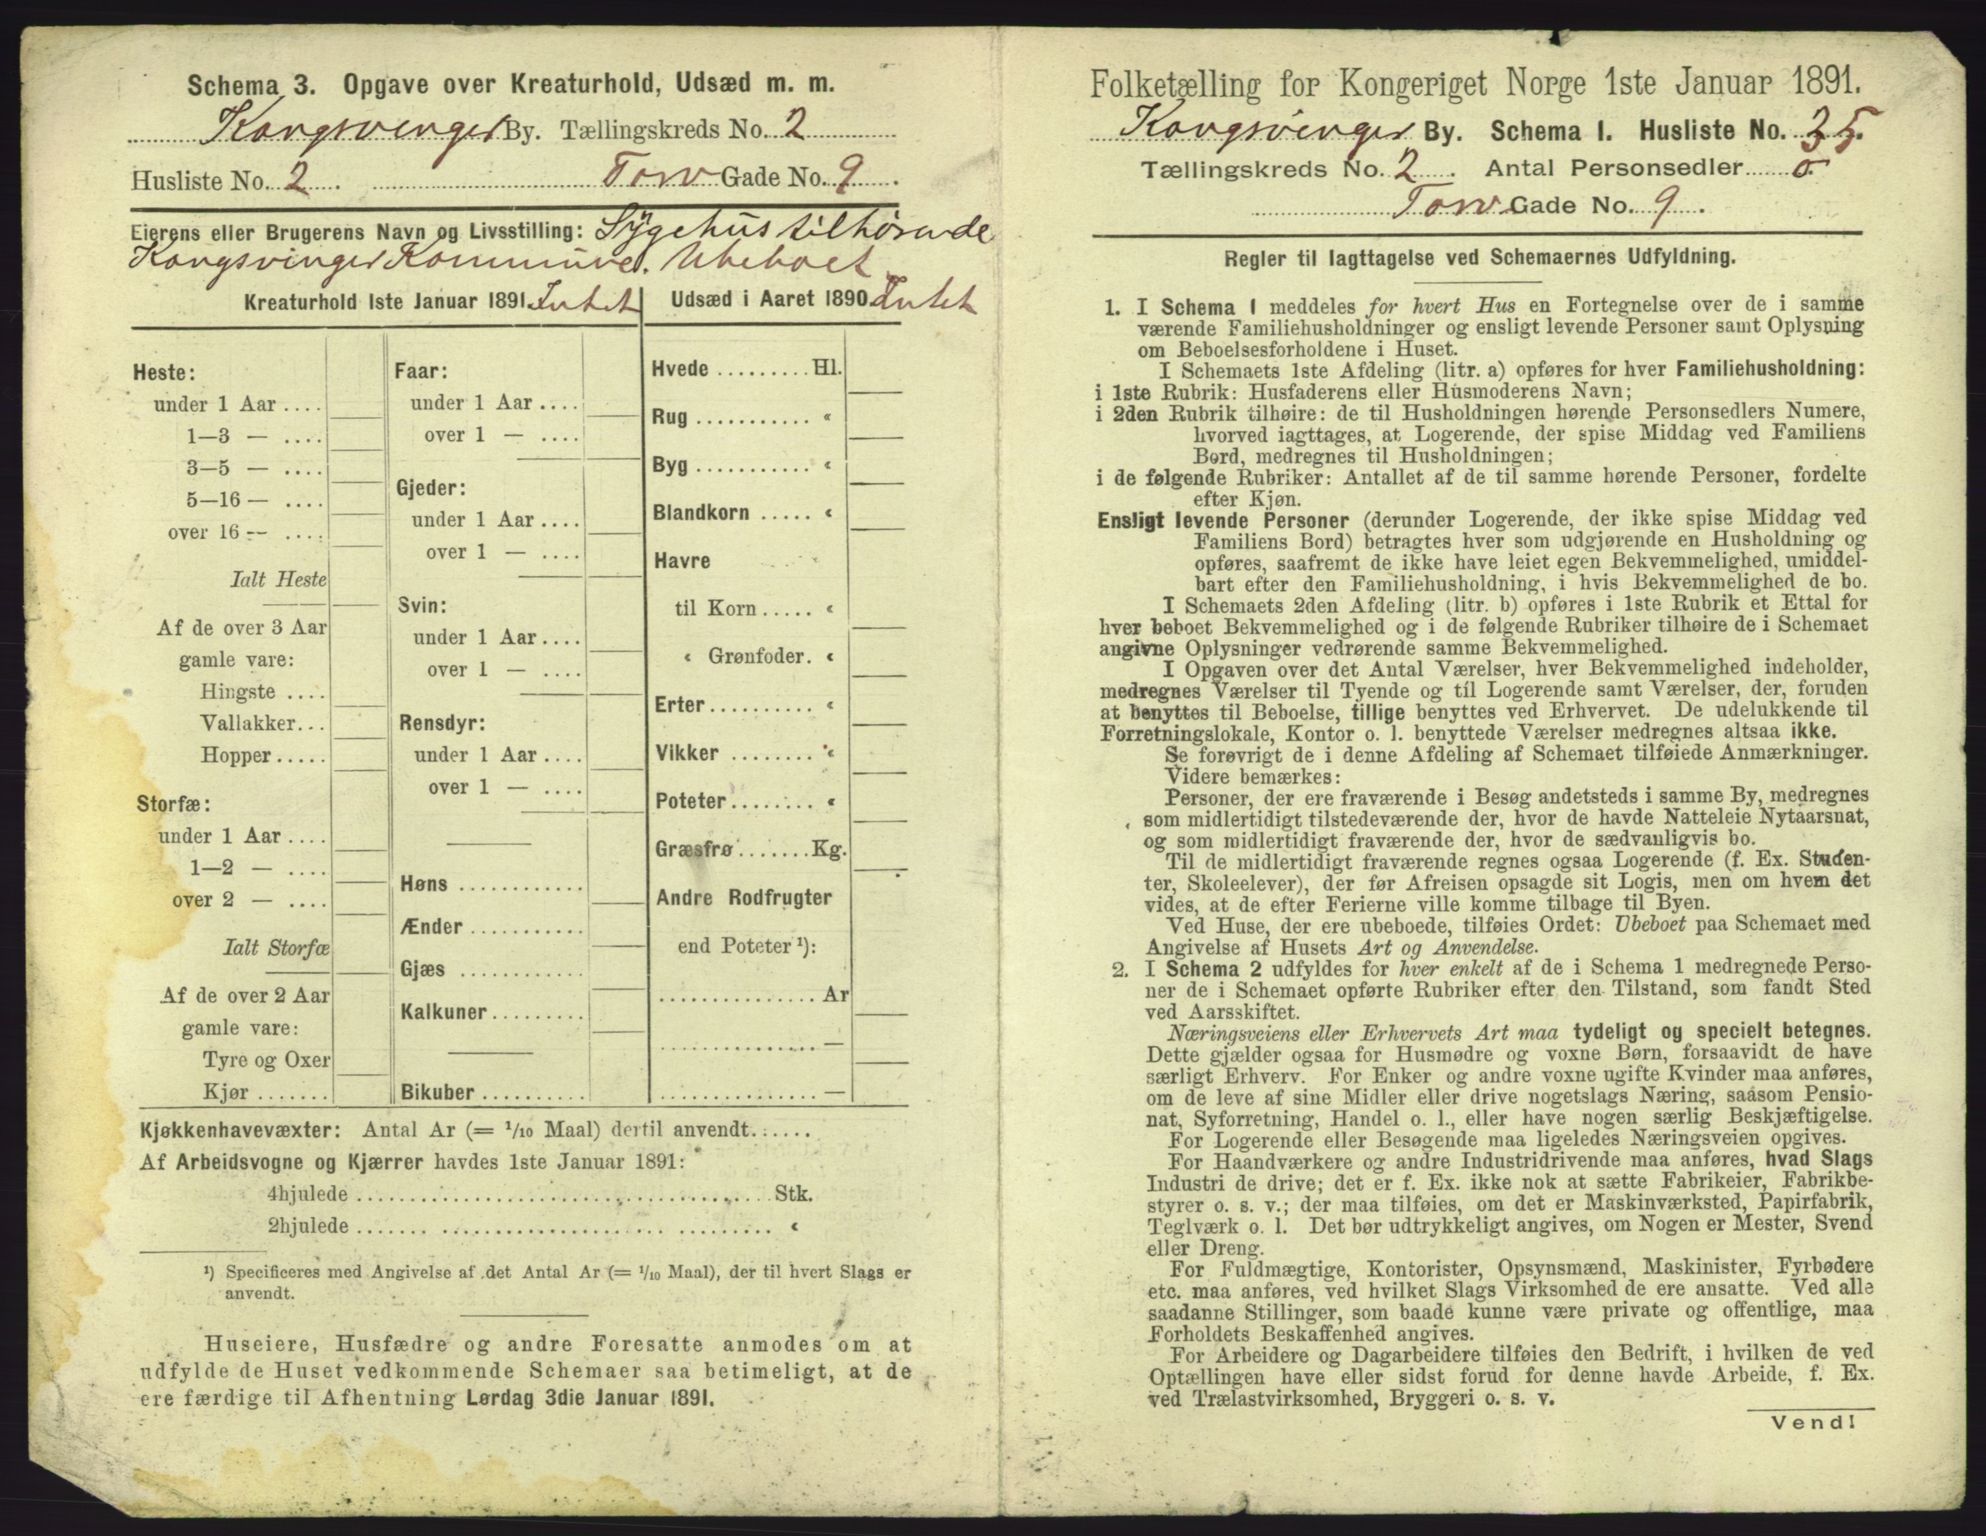 Schema 3. Opgave over Kreaturhold, Udsæd m. m.
Kongsvinger By. Tællingskreds No. 2
Husliste No. 2. Torv Gade No. 9.
Eierens eller Brugerens Navn og Livsstilling: Sygehus tilhørende
Kongsvinger Kommune. Ubeboet
Kreaturhold 1ste Januar 1891. Intet
Heste:
under 1 Aar ....
1—3 — ....
3—5 — ....
5—16 — ....
over 16 — ....
Ialt Heste
Af de over 3 Aar
gamle vare:
Hingste ....
Vallakker...
Hopper .....
Storfæ:
under 1 Aar ....
1—2 — ....
over 2 — ....
Ialt Storfæ
Af de over 2 Aar
gamle vare:
Tyre og Oxer
Kjør .......
Faar:
under 1 Aar ....
over 1 — ....
Gjeder:
under 1 Aar ....
over 1 — ....
Svin:
under 1 Aar ....
over 1 — ....
Rensdyr:
under 1 Aar ....
over 1 — ....
Høns ............
Ænder ...........
Gjæs ............
Kalkuner.........
Bikuber..........
Udsæd i Aaret 1890. Intet
Hvede ......... Hl.
Rug ........... «
Byg ........... «
Blandkorn ..... «
Havre
til Korn ..... «
« Grønfoder. «
Erter.......... «
Vikker ........ «
Poteter........ «
Græsfrø....... Kg.
Andre Rodfrugter
end Poteter ¹):
............... Ar
............... —
............... —
Kjøkkenhavevæxter: Antal Ar (= 1/10 Maal) dertil anvendt.......
Af Arbeidsvogne og Kjærrer havdes 1ste Januar 1891:
4hjulede ........................................ Stk.
2hjulede ........................................ «
¹) Specificeres med Angivelse af det Antal Ar (= 1/10 Maal), der til hvert Slags er
anvendt.
Huseiere, Husfædre og andre Foresatte anmodes om at
udfylde de Huset vedkommende Schemaer saa betimeligt, at de
ere færdige til Afhentning Lørdag 3die Januar 1891.
Folketælling for Kongeriget Norge 1ste Januar 1891.
Kongsvinger By. Schema I. Husliste No. 35.
Tællingskreds No. 2. Antal Personsedler 0.
Torv Gade No. 9.
Regler til Iagttagelse ved Schemaernes Udfyldning.
1. I Schema 1 meddeles for hvert Hus en Fortegnelse over de i samme
værende Familiehusholdninger og ensligt levende Personer samt Oplysning
om Beboelsesforholdene i Huset.
I Schemaets 1ste Afdeling (litr. a) opføres for hver Familiehusholdning:
i 1ste Rubrik: Husfaderens eller Husmoderens Navn;
i 2den Rubrik tilhøire: de til Husholdningen hørende Personsedlers Numere,
hvorved iagttages, at Logerende, der spise Middag ved Familiens
Bord, medregnes til Husholdningen;
i de følgende Rubriker: Antallet af de til samme hørende Personer, fordelte
efter Kjøn.
Ensligt levende Personer (derunder Logerende, der ikke spise Middag ved
Familiens Bord) betragtes hver som udgjørende en Husholdning og
opføres, saafremt de ikke have leiet egen Bekvemmelighed, umiddel-
bart efter den Familiehusholdning, i hvis Bekvemmelighed de bo.
I Schemaets 2den Afdeling (litr. b) opføres i 1ste Rubrik et Ettal for
hver beboet Bekvemmelighed og i de følgende Rubriker tilhøire de i Schemaet
angivne Oplysninger vedrørende samme Bekvemmelighed.
I Opgaven over det Antal Værelser, hver Bekvemmelighed indeholder,
medregnes Værelser til Tyende og til Logerende samt Værelser, der, foruden
at benyttes til Beboelse, tillige benyttes ved Erhvervet. De udelukkende til
Forretningslokale, Kontor o. l. benyttede Værelser medregnes altsaa ikke.
Se forøvrigt de i denne Afdeling af Schemaet tilføiede Anmærkninger.
Videre bemærkes:
Personer, der ere fraværende i Besøg andetsteds i samme By, medregnes
som midlertidigt tilstedeværende der, hvor de havde Natteleie Nytaarsnat,
og som midlertidigt fraværende der, hvor de sædvanligvis bo.
Til de midlertidigt fraværende regnes ogsaa Logerende (f. Ex. Studen-
ter, Skoleelever), der før Afreisen opsagde sit Logis, men om hvem det
vides, at de efter Ferierne ville komme tilbage til Byen.
Ved Huse, der ere ubeboede, tilføies Ordet: Ubeboet paa Schemaet med
Angivelse af Husets Art og Anvendelse.
2. I Schema 2 udfyldes for hver enkelt af de i Schema 1 medregnede Perso-
ner de i Schemaet opførte Rubriker efter den Tilstand, som fandt Sted
ved Aarsskiftet.
Næringsveiens eller Erhvervets Art maa tydeligt og specielt betegnes.
Dette gjælder ogsaa for Husmødre og voxne Børn, forsaavidt de have
særligt Erhverv. For Enker og andre voxne ugifte Kvinder maa anføres,
om de leve af sine Midler eller drive nogetslags Næring, saasom Pensio-
nat, Syforretning, Handel o. l., eller have nogen særlig Beskjæftigelse.
For Logerende eller Besøgende maa ligeledes Næringsveien opgives.
For Haandværkere og andre Industridrivende maa anføres, hvad Slags
Industri de drive; det er f. Ex. ikke nok at sætte Fabrikeier, Fabrikbe-
styrer o. s. v.; der maa tilføies, om det er Maskinværksted, Papirfabrik,
Teglværk o. l. Det bør udtrykkeligt angives, om Nogen er Mester, Svend
eller Dreng.
For Fuldmægtige, Kontorister, Opsynsmænd, Maskinister, Fyrbødere
etc. maa anføres, ved hvilket Slags Virksomhed de ere ansatte. Ved alle
saadanne Stillinger, som baade kunne være private og offentlige, maa
Forholdets Beskaffenhed angives.
For Arbeidere og Dagarbeidere tilføies den Bedrift, i hvilken de ved
Optællingen have eller sidst forud for denne havde Arbeide, f. Ex.
ved Trælastvirksomhed, Bryggeri o. s. v.
Vend!